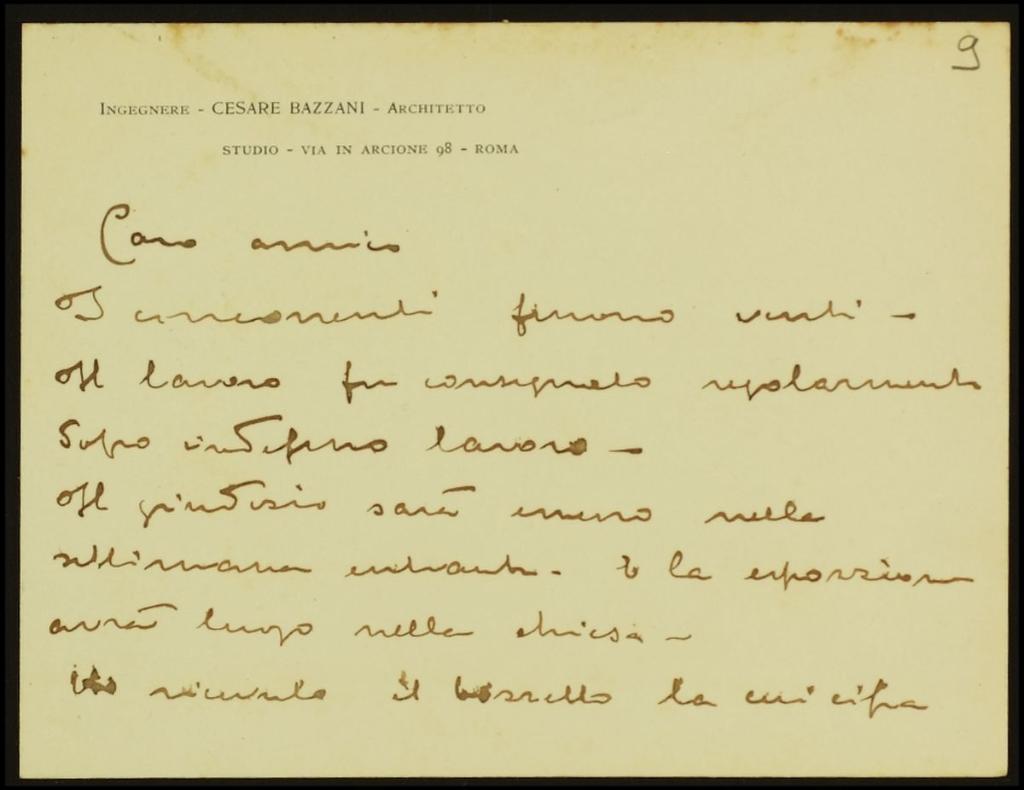 9
INGEGNERE - CESARE BAZZANI - ARCHITETTO
STUDIO - VIA IN ARCIONE 98 - ROMA
Caro amico
I concorrenti furono venti -
Il lavoro fu consegnato regolarmente
dopo indefesso lavoro -
Il giudizio sarà emesso nella
settimana entrante - E la esposizione
avrà luogo nella chiesa -
Ho ricevuto il bozzetto la cui cifra